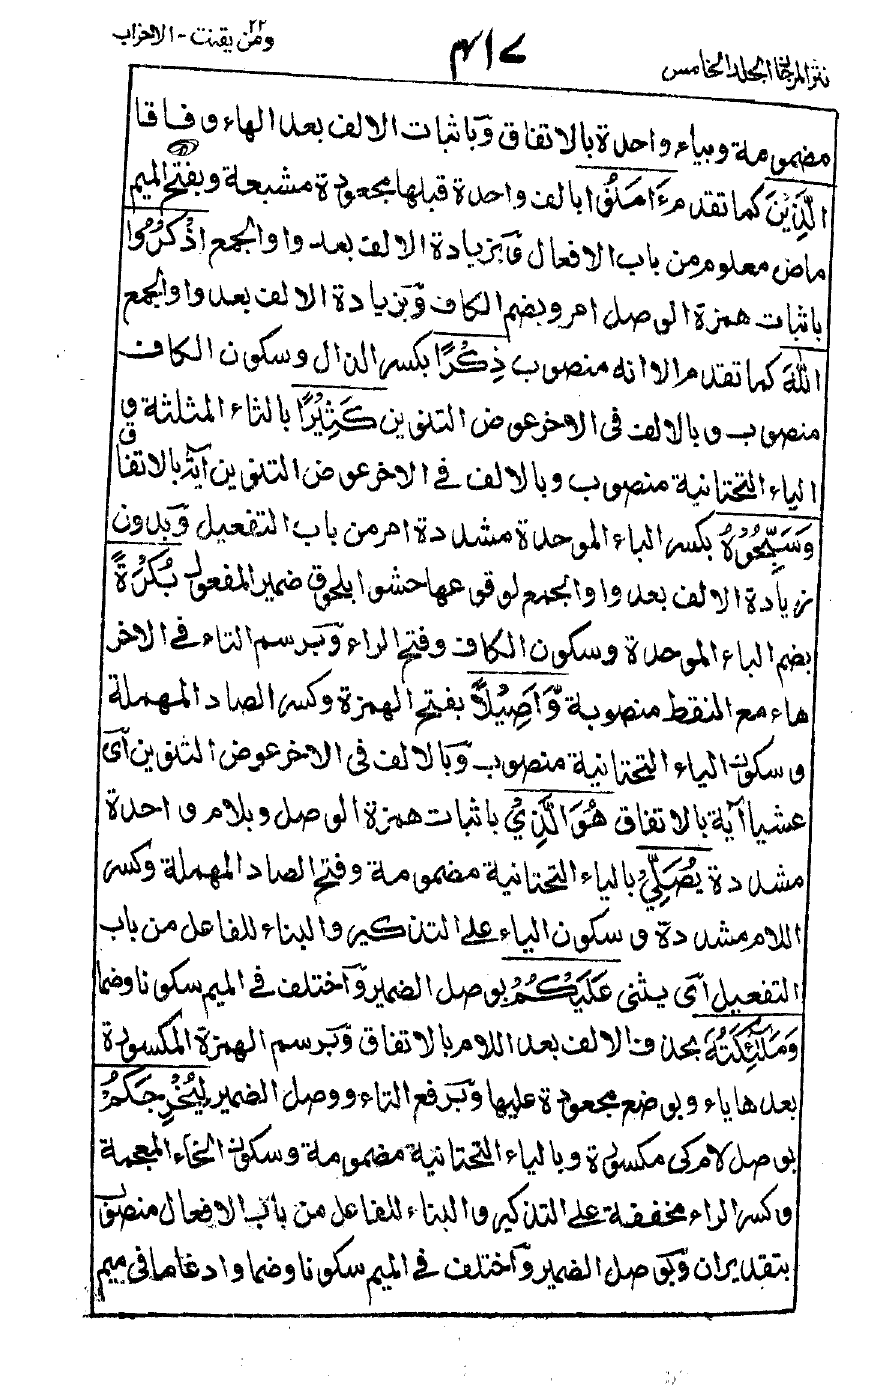 نثر المرجان المجلد الخامس
٤١٧
ومن يقنت ٢٢ - الاحزاب
مضمومة وبياء واحدة بالاتفاق وَباثبات الالف بعد الهاء وفاقا
الَّذِيْنَ كما تقدم ءَامَنُوْا بالف واحدة قبلها مجعودة مشبعة وبفتح الميم
ماض معلوم من باب الافعال وَبزيادة الالف بعد واو الجمع اذْكُرُوا
باثبات همزة الوصل امر وبضم الكاف وَبزيادة الالف بعد واو الجمع
اللهَ كما تقدم الا انه منصوب ذِكْرًا بكسر الذال وسكون الكاف
منصوب وبالالف فى الاخر عوض التنوين كَثِيْرًا بالثاء المثلثة و
الياء التحتانية منصوب وبالالف فے الاخر عوض التنوين آية بالاتفاق
وَسَبِّحُوْهُ بكسر الباء الموحدة مشددة امر من باب التفعيل وَبدون
زيادة الالف بعد واو الجمع لوقوعها حشوا بلحوق ضمير المفعول بُكْرَةً
بضم الباء الموحدة وسكون الكاف وفتح الراء وَبرسم التاء فے الاخر
هاء مع النقط منصوبة وَّاَصِيْلًا بفتح الهمزة وكسر الصاد المهملة
وسكون الياء التحتانية منصوب وَبالالف فى الاخر عوض التنوين آى
عشيا آية بالاتفاق هُوَ الَّذِيْ باثبات همزة الوصل وبلام واحدة
مشددة يُصَلِّيْ بالياء التحتانية مضمومة وفتح الصاد المهملة وكسر
اللام مشددة وسكون الياء علے التذكير والبناء للفاعل من باب
التفعيل آى يثنى عَلَيْكُمْ بوصل الضمير وَآختلف فے الميم سكونا وضما
وَمَلٰٓئِكَتُهٗ بحذف الالف بعد اللام بالاتفاق وَبرسم الهمزة المكسورة
بعدها ياء وبوضع مجعودة عليها وَبرفع التاء ووصل الضمير لِيُخْرِجَكُمْ
بوصل لام كى مكسورة وبالياء التحتانية مضمومة وسكون الخاء المعجمة
وكسر الراء مخففة علے التذكير والبناء للفاعل من باب الافعال منصوب
بتقدير ان وَبوصل الضمير وَآختلف فے الميم سكونا وضما وادغاما فى ميم